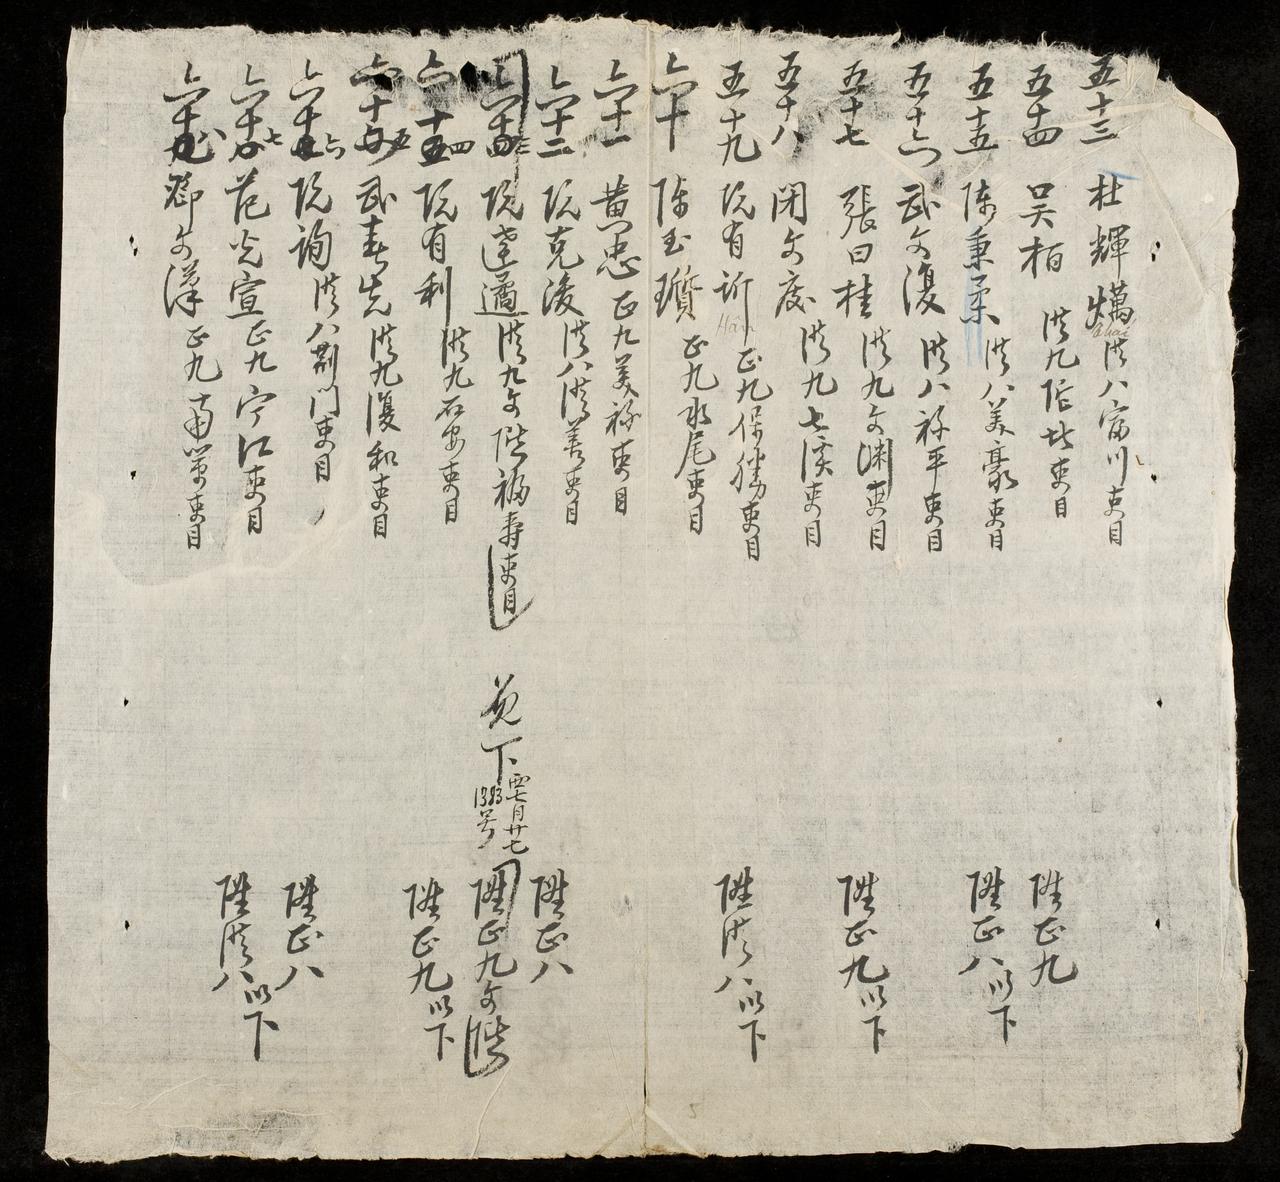 五十三 杜輝 從八富川吏目
Khải
五十四 吳栢 從九 吏目
陞正九
五十五 陳秉柔 從八美豪吏目
陞正八以下
五十六 武文復 從八祿平吏目
五十七 張曰桂 從九文淵吏目
陞正九以下
五十八 閉文度 從九七溪吏目
五十九 阮有訢 正九保勝吏目
Hân
陞從八以下
六十 陳玉瓚 正九水尾吏目
六十一 黃忠 正九美祿吏目
六十二 阮克浚 從八從善吏目
陞正八
六十三 阮遶遹 從九文階福壽吏目
見下 七月廿七
1383号
陞正九文階
六十四 阮有利 從九石安吏目
陞正九以下
六十五 武春先 從九復和吏目
六十六 阮詢 從八荊門吏目
陞正八
六十七 范光宣 正九宁江吏目
陞從八以下
六十 鄧文漢 正九南 吏目